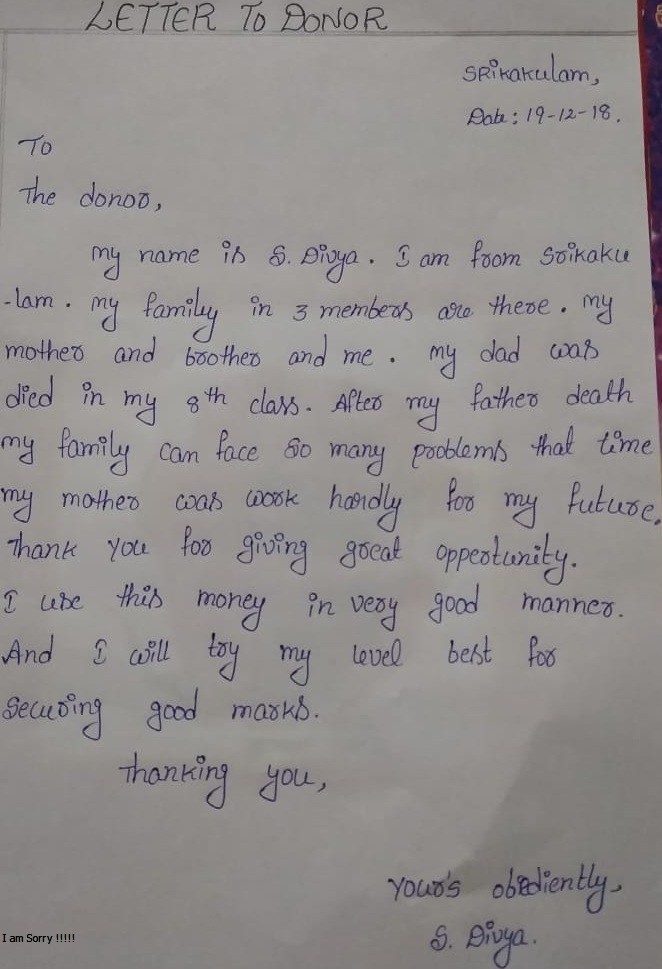 LETTER TO DONOR
Srikakulam,
Date: 19-12-18.
To
The donor,
my name is S. Divya. I am from Srikaku
-lam. my family in 3 members are there. my
mother and brother and me. my dad was
died in my 8th class. After my father death
my family can face so many problems that time
my mother was work hardly for my future.
Thank you for giving great oppertunity.
I use this money in very good manner.
And I will try my level best for
securing good marks.
Thanking you,
Your's obediently,
S. Divya.
I am Sorry !!!!!